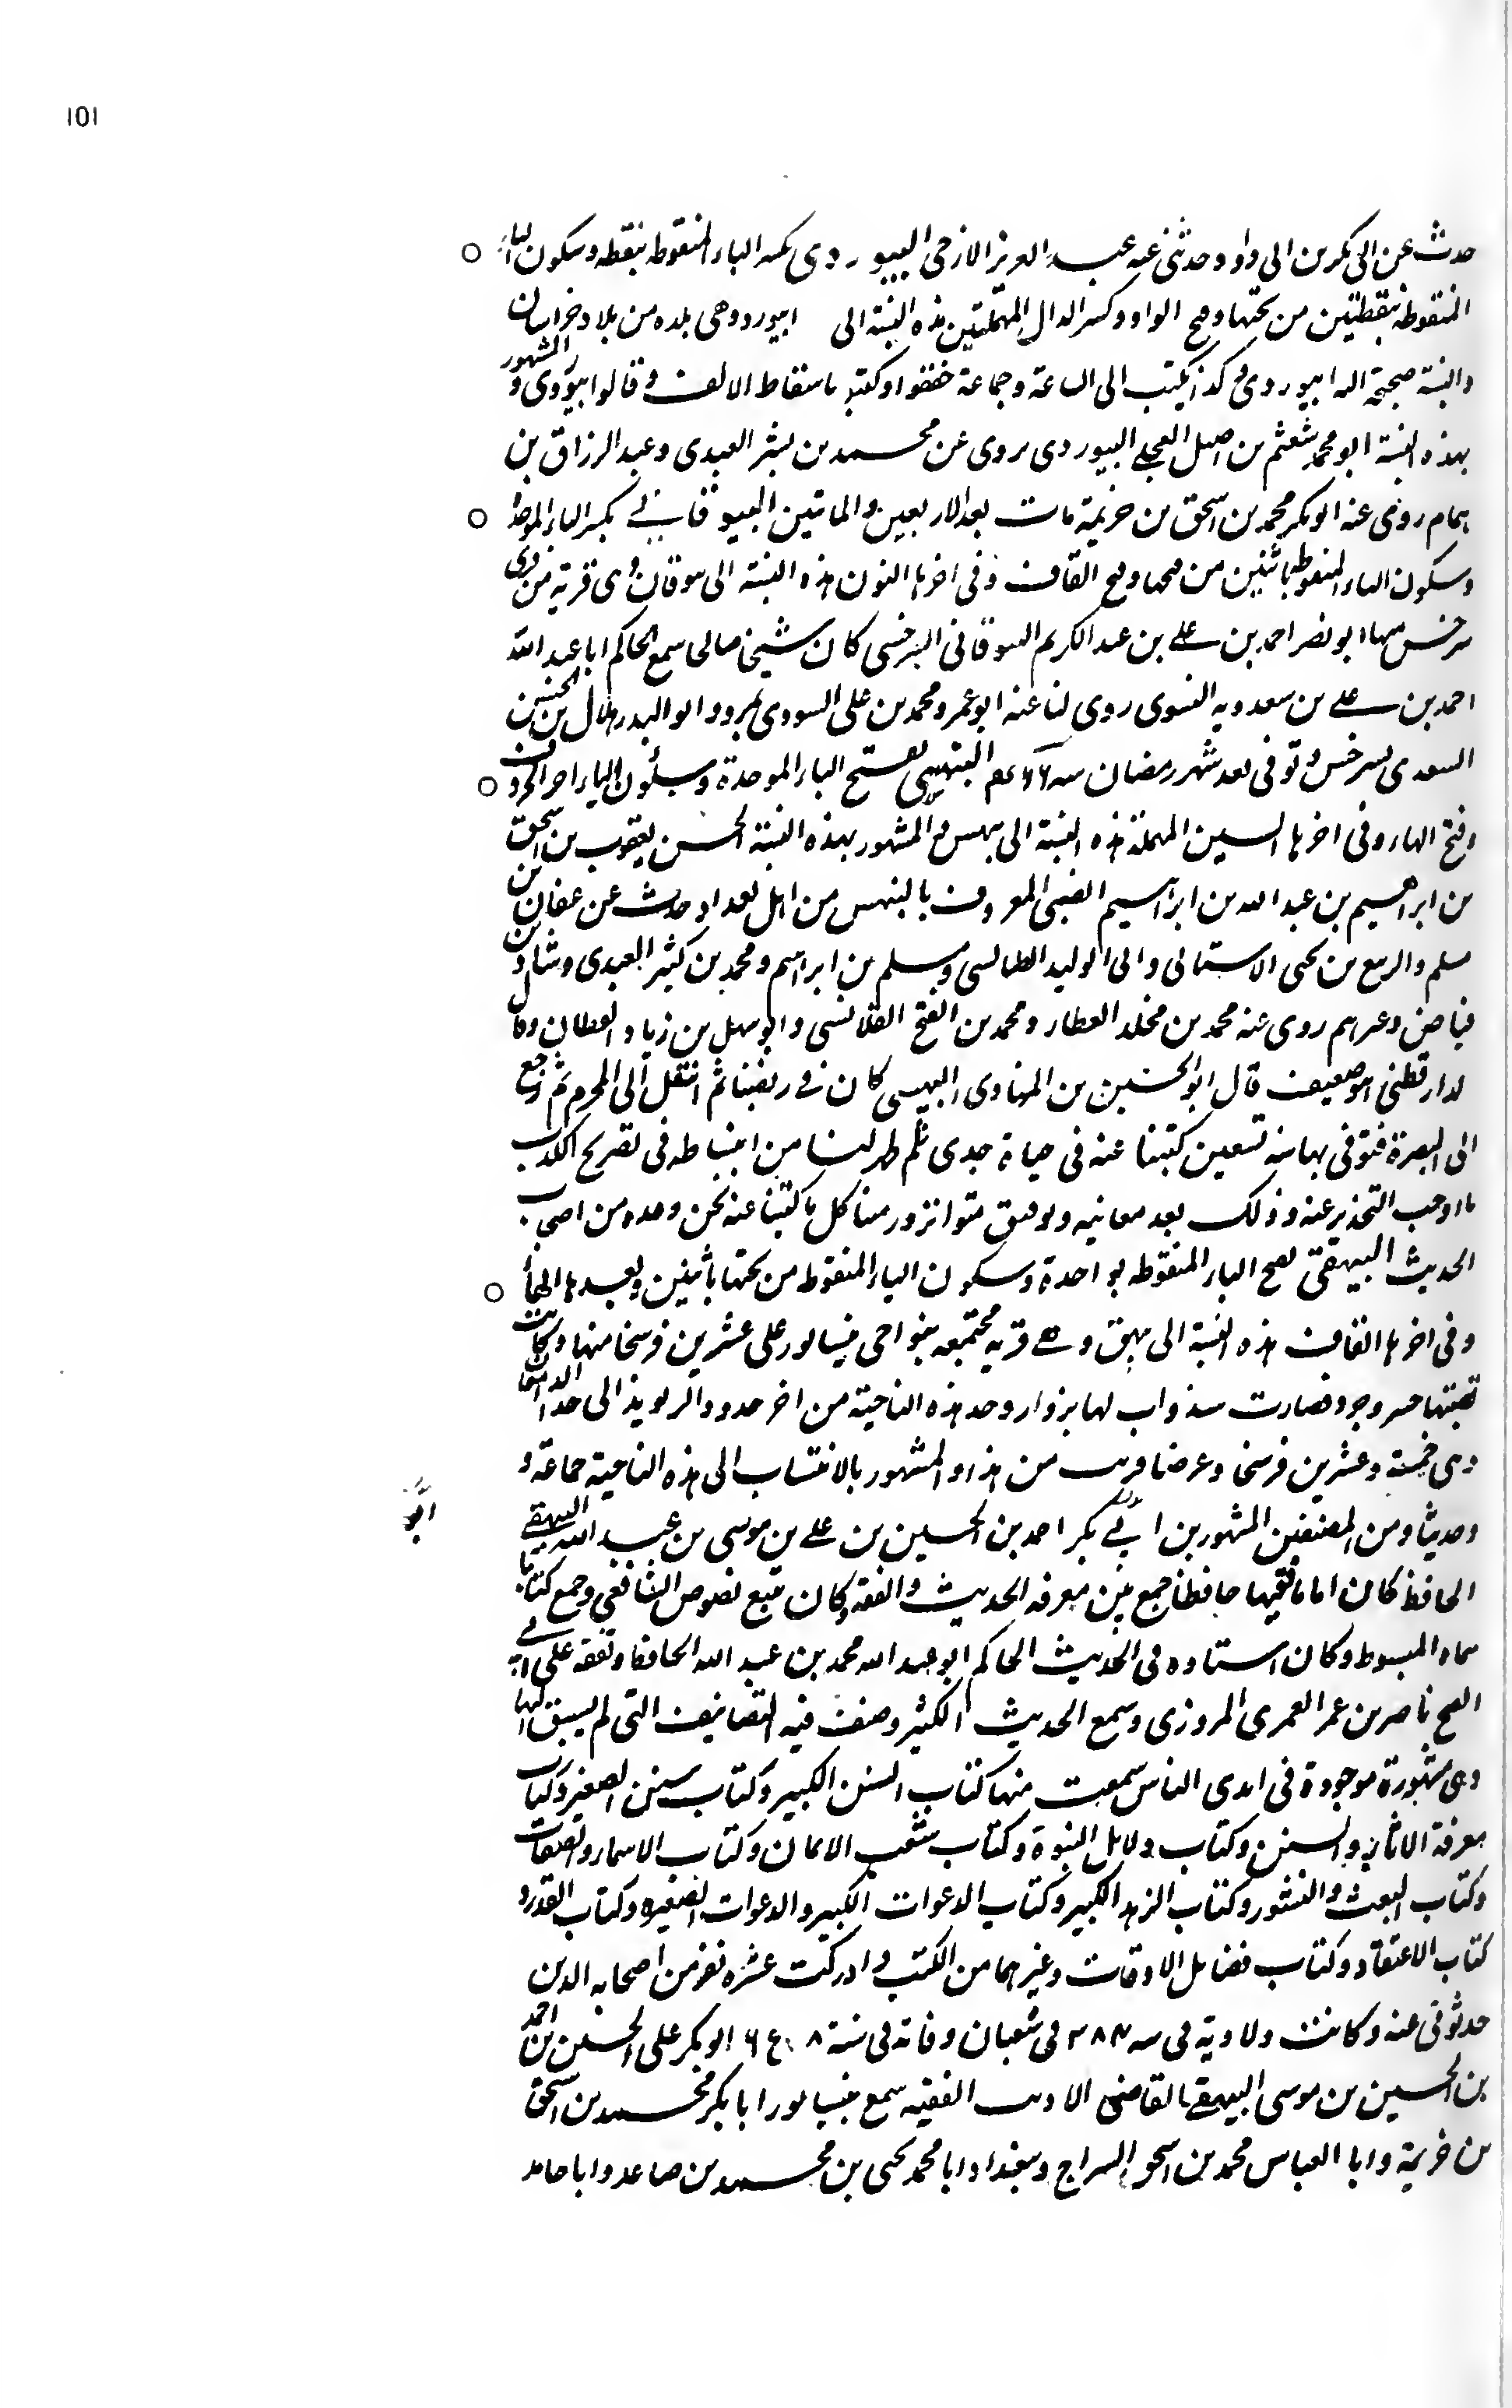 101
حدث عن ابي بكر بن ابي داود وحدثني عنه عبد العزيز الازجي البيوردي بكسر الباء المنقوطه بنقطه وسكون الياء
المنقوطة بنقطتين من تحتها وفتح الواو وكسر الدال المهملتين هذه النسبة الى ابيورد وهي بلده من بلاد خراسان
والنسبة صحيحة اليه ابيوردي وكذا يكتب الى الساعة وجماعة خففوا وكتبوا باسقاط الالف وقالوا بيوردي والمشهور
بهذه النسبة ابو محمد شعثم بن اصيل العجلي البيوردي يروى عن محمد بن بشر العبدى وعبد الرزاق بن
همام روى عنه ابو بكر محمد بن اسحق بن خزيمة مات بعد الاربعين والماتين البيوقاني بكسر الباء الموحدة
وسكون الياء المنقوطة باثنين من تحتها وفتح القاف وفى اخرها النون هذه النسبة الى بيوقان وهى قرية من قرى
سرخس منها ابو نصر احمد بن على بن عبد الكريم البيوقانى السرخسى كان شيخا صالحا سمع الحاكم ابا عبد الله
احمد بن على بن سعدويه النسوى روى لنا عنه ابو عمرو محمد بن على السودى بمرو وابو البدر هلال بن الحسين
السعدى بسرخس وتوفى بعد شهر رمضان سنه البيهسى بفتح الباء الموحدة وسكون الياء اخر الحروف
وفتح الهاء وفى اخرها السين المهملة هذه النسبة الى بيهس والمشهور بهذه النسبة الحسن يعقوب بن اسحق
بن ابراهيم بن عبد الله بن ابراهيم الضبى المعروف بالبيهس من اهل بغداد حدث عن عفان بن
مسلم والربيع بن يحيى الاشنانى وابى الوليد الطيالسى ومسلم بن ابراهيم ومحمد بن كثير العبدى وشاذ بن
فياض وغيرهم روى عنه محمد بن مخلد العطار ومحمد بن الفتح القلانسى وابو سهل بن زياد القطان وقال
لدارقطنى هو ضعيف قال ابو الحسين بن المنادى البيهسى كان فى ربضنا ثم انتقل الى المخرم ثم رجع
الى البصرة فتوفى بها سنه تسعين كتبنا عنه فى حياة جدى ثم ظهر لنا من انبساطه فى تصريح الكذب
ما اوجب التحذير عنه وذلك بعد معاتبة وتوقيف متواتر ورمينا كل ما كتبنا عنه نحن وعده من اصحاب
الحديث البيهقى بفتح الباء المنقوطه بواحدة وسكون الياء المنقوطه من تحتها باثنين وبعدها الهاء
وفى اخرها القاف هذه النسبة الى بيهق وهي قريه مجتمعه بنواحى نيسابور على عشرين فرسخا منها وكانت
قصبتها خسروجرد فصارت سبزوار وحد هذه الناحية من اخر حدود الريوند الى حد الدامغان
وهى خمسة وعشرين فرسخا وعرضا قريب من هذا والمشهور بالانتساب الى هذه الناحية جماعة و
وحديثا ومن المصنفين المشهورين ابي بكر احمد بن الحسين بن على بن موسى بن عبد الله البيهقي
ابو
الحافظ كان اماما فقيها حافظا جمع بين معرفه الحديث والفقه وكان تتبع نصوص الشافعي وجمع كتابا
سماه المبسوط وكان استاده فى الحديث الحاكم ابو عبد الله محمد بن عبد الله الحافظ وتفقه على ابي
الفتح ناصر بن عمر العمرى المروزى وسمع الحديث الكثير وصنف فيه التصانيف التى لم يسبق اليها
وهى مشهورة موجودة فى ايدى الناس سمعت منها كتاب السنن الكبير وكتاب سنن الصغير وكتاب
معرفة الاثار والسنن وكتاب دلايل النبوة وكتاب شعب الايمان وكتاب الاسماء والصفات
وكتاب البعث والنشور وكتاب الزهد الكبير وكتاب الدعوات الكبير والدعوات الصغيره وكتاب القدر و
كتاب الاعتقاد وكتاب فضايل الاوقات وغيرهما من الكتب وادركت عشره نفر من اصحابه الذين
حدثونى عنه وكانت ولادته فى سنه ٣٨٤ فى شعبان وفاته فى سنة ابو بكر على الحسين بن احمد
بن الحسين بن موسى البيهقي القاضى الاديب الفقيه سمع بنيسابور ابا بكر محمد بن اسحق
بن خزيمة وابا العباس محمد بن اسحق السراج وببغداد ابا محمد يحيى بن محمد بن صاعد وابا حامد